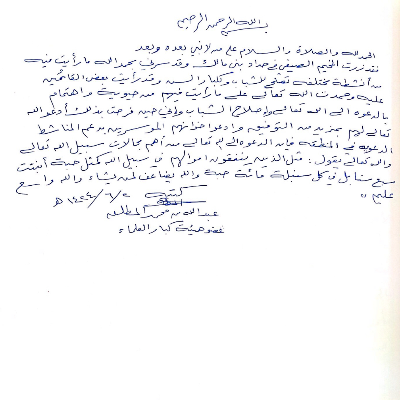 بسم الله الرحمن الرحيم
الحمد لله والصلاة والسلام على من لا نبي بعده وبعد
فقد زرت المخيم الصيفي في حداد بني مالك وقد سرني بحمد الله ما رأيت فيه
من أنشطة مختلفة تصلح للشباب وكبار السن وقد رأيت بعض القائمين
عليه وحمدت الله تعالى على ما رأيت فيهم من حيوية واهتمام
بالدعوة إلى الله تعالى وإصلاح الشباب وإني حين فرحت بذلك أدعو الله
تعالى لهم بمزيد من التوفيق وأدعو إخوانهم الموسرين بدعم المناشط
الدعوية في المنطقة فإن الدعوة إلى الله تعالى من أهم مجالات سبيل الله تعالى
والله تعالى يقول: مثل الذين ينفقون أموالهم في سبيل الله كمثل حبة أنبتت
سبع سنابل في كل سنبلة مائة حبة والله يضاعف لمن يشاء والله واسع
عليم "
كتبه
١٤٢٤/٦/٢ هـ
عبدالله بن محمد المطلق
عضو هيئة كبار العلماء